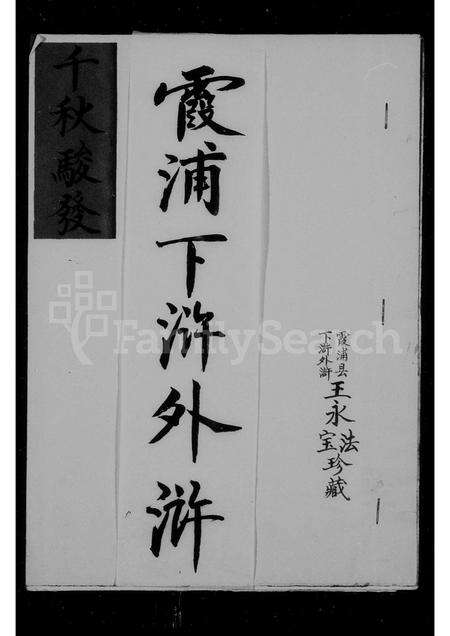 霞浦县
下浒外浒
王永法
宝珍藏
霞浦下浒外浒
千秋駿發
FamilySearch